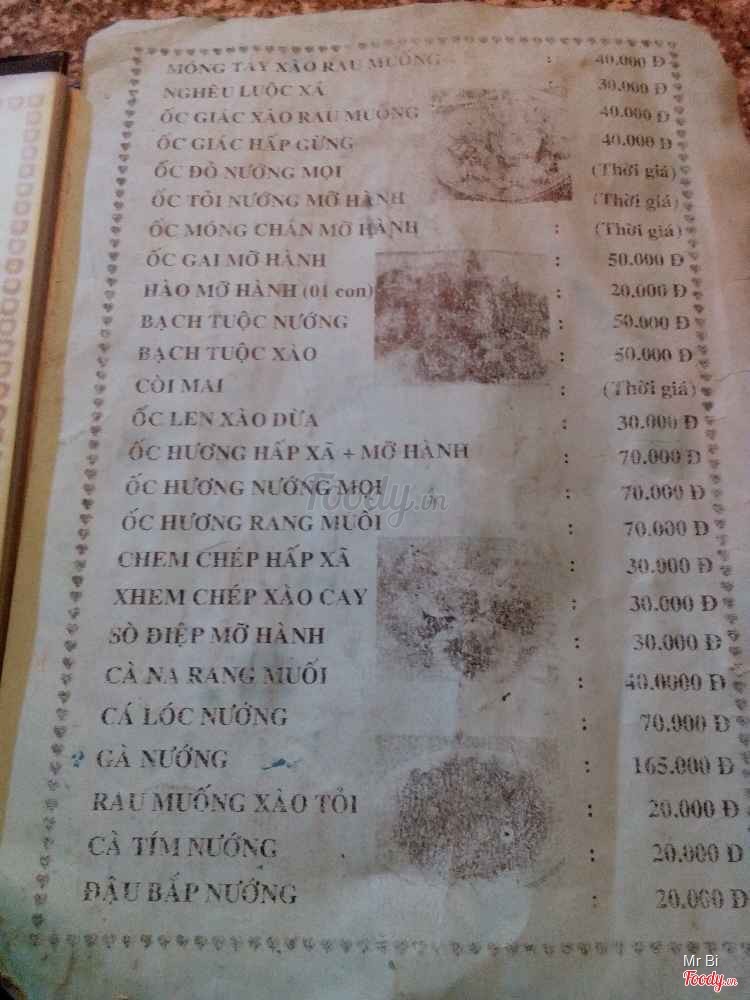 MÓNG TAY XÀO RAU MUỐNG : 40.000 Đ
NGHÊU LUỘC XẢ 30.000 Đ
ỐC GIÁC XÀO RAU MUỐNG 40.000 Đ
ỐC GIÁC HẤP GỪNG 40.000 Đ
ỐC ĐỎ NƯỚNG MỌI (Thời giá)
ỐC TỎI NƯỚNG MỠ HÀNH (Thời giá)
ỐC MÓNG CHÂN MỠ HÀNH : (Thời giá)
ỐC GAI MỠ HÀNH : 50.000 Đ
HÀO MỠ HÀNH (01 con) : 20.000 Đ
BẠCH TUỘC NƯỚNG : 50.000 Đ
BẠCH TUỘC XÀO : 50.000 Đ
CÒI MAI : (Thời giá)
ỐC LEN XÀO DỪA : 30.000 Đ
ỐC HƯƠNG HẤP XÃ + MỠ HÀNH : 70.000 Đ
ỐC HƯƠNG NƯỚNG MỌI : 70.000 Đ
ỐC HƯƠNG RANG MUÔI : 70.000 Đ
CHEM CHÉP HẤP XÃ : 30.000 Đ
XHEM CHÉP XÀO CAY : 30.000 Đ
SÒ ĐIỆP MỠ HÀNH : 30.000 Đ
CÀ NA RANG MUỐI : 40.0000 Đ
CÁ LÓC NƯỚNG : 70.000 Đ
GÀ NƯỚNG : 165.000 Đ
RAU MUỐNG XÀO TỎI : 20.000 Đ
CÀ TÍM NƯỚNG : 20.000 Đ
ĐẬU BẮP NƯỚNG : 20.000 Đ
Foody.vn
Mr Bi
Foody.vn